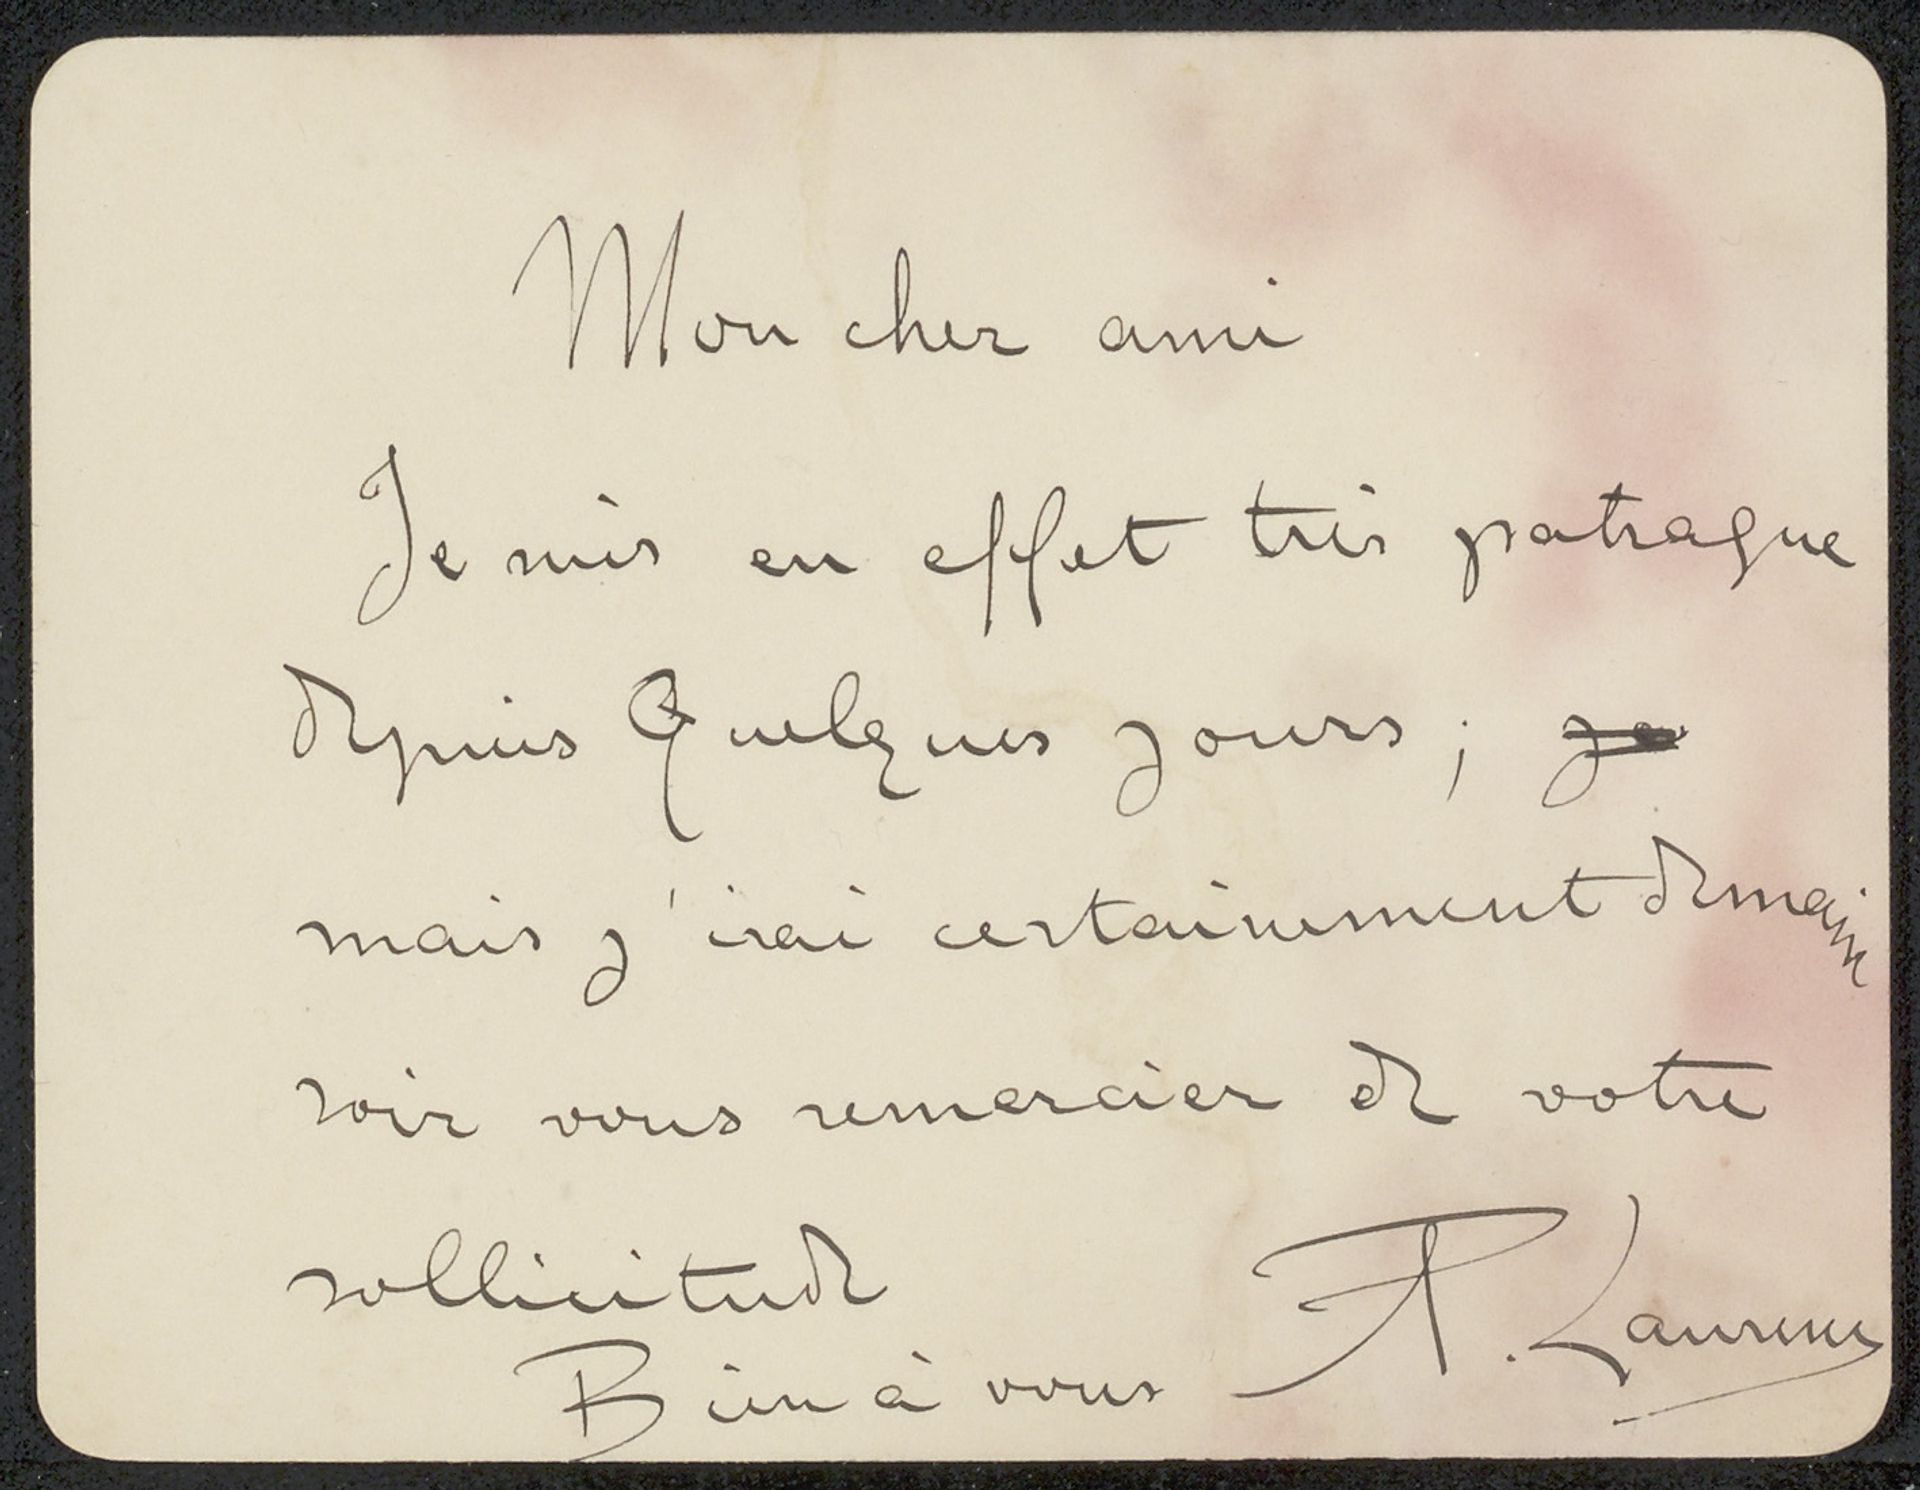 Mon cher ami
Je suis en effet très patraque
depuis Quelques jours ; je
mais j'irai certainement demain
soir vous remercier de votre
sollicitude
Bien à vous A. Laurens